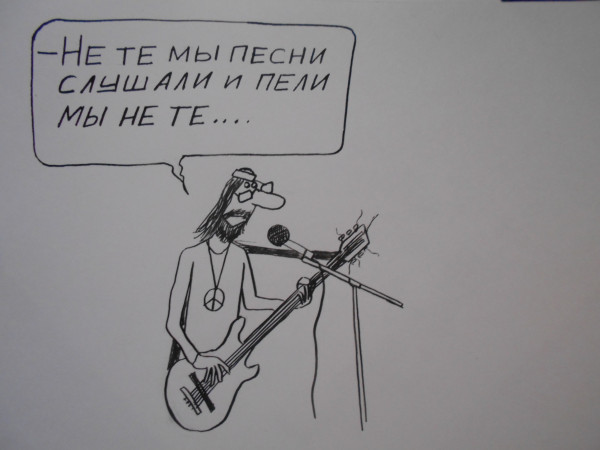 –НЕ ТЕ МЫ ПЕСНИ
СЛУШАЛИ И ПЕЛИ
МЫ НЕ ТЕ....